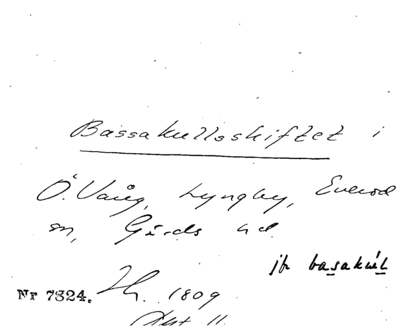 Bassakullsskiftet i
Ö. Vång, Lyngby, Everöd
sn, Gärds hd.
jfr basakúl
Nr 7324. Lh. 1809
Akt 11.